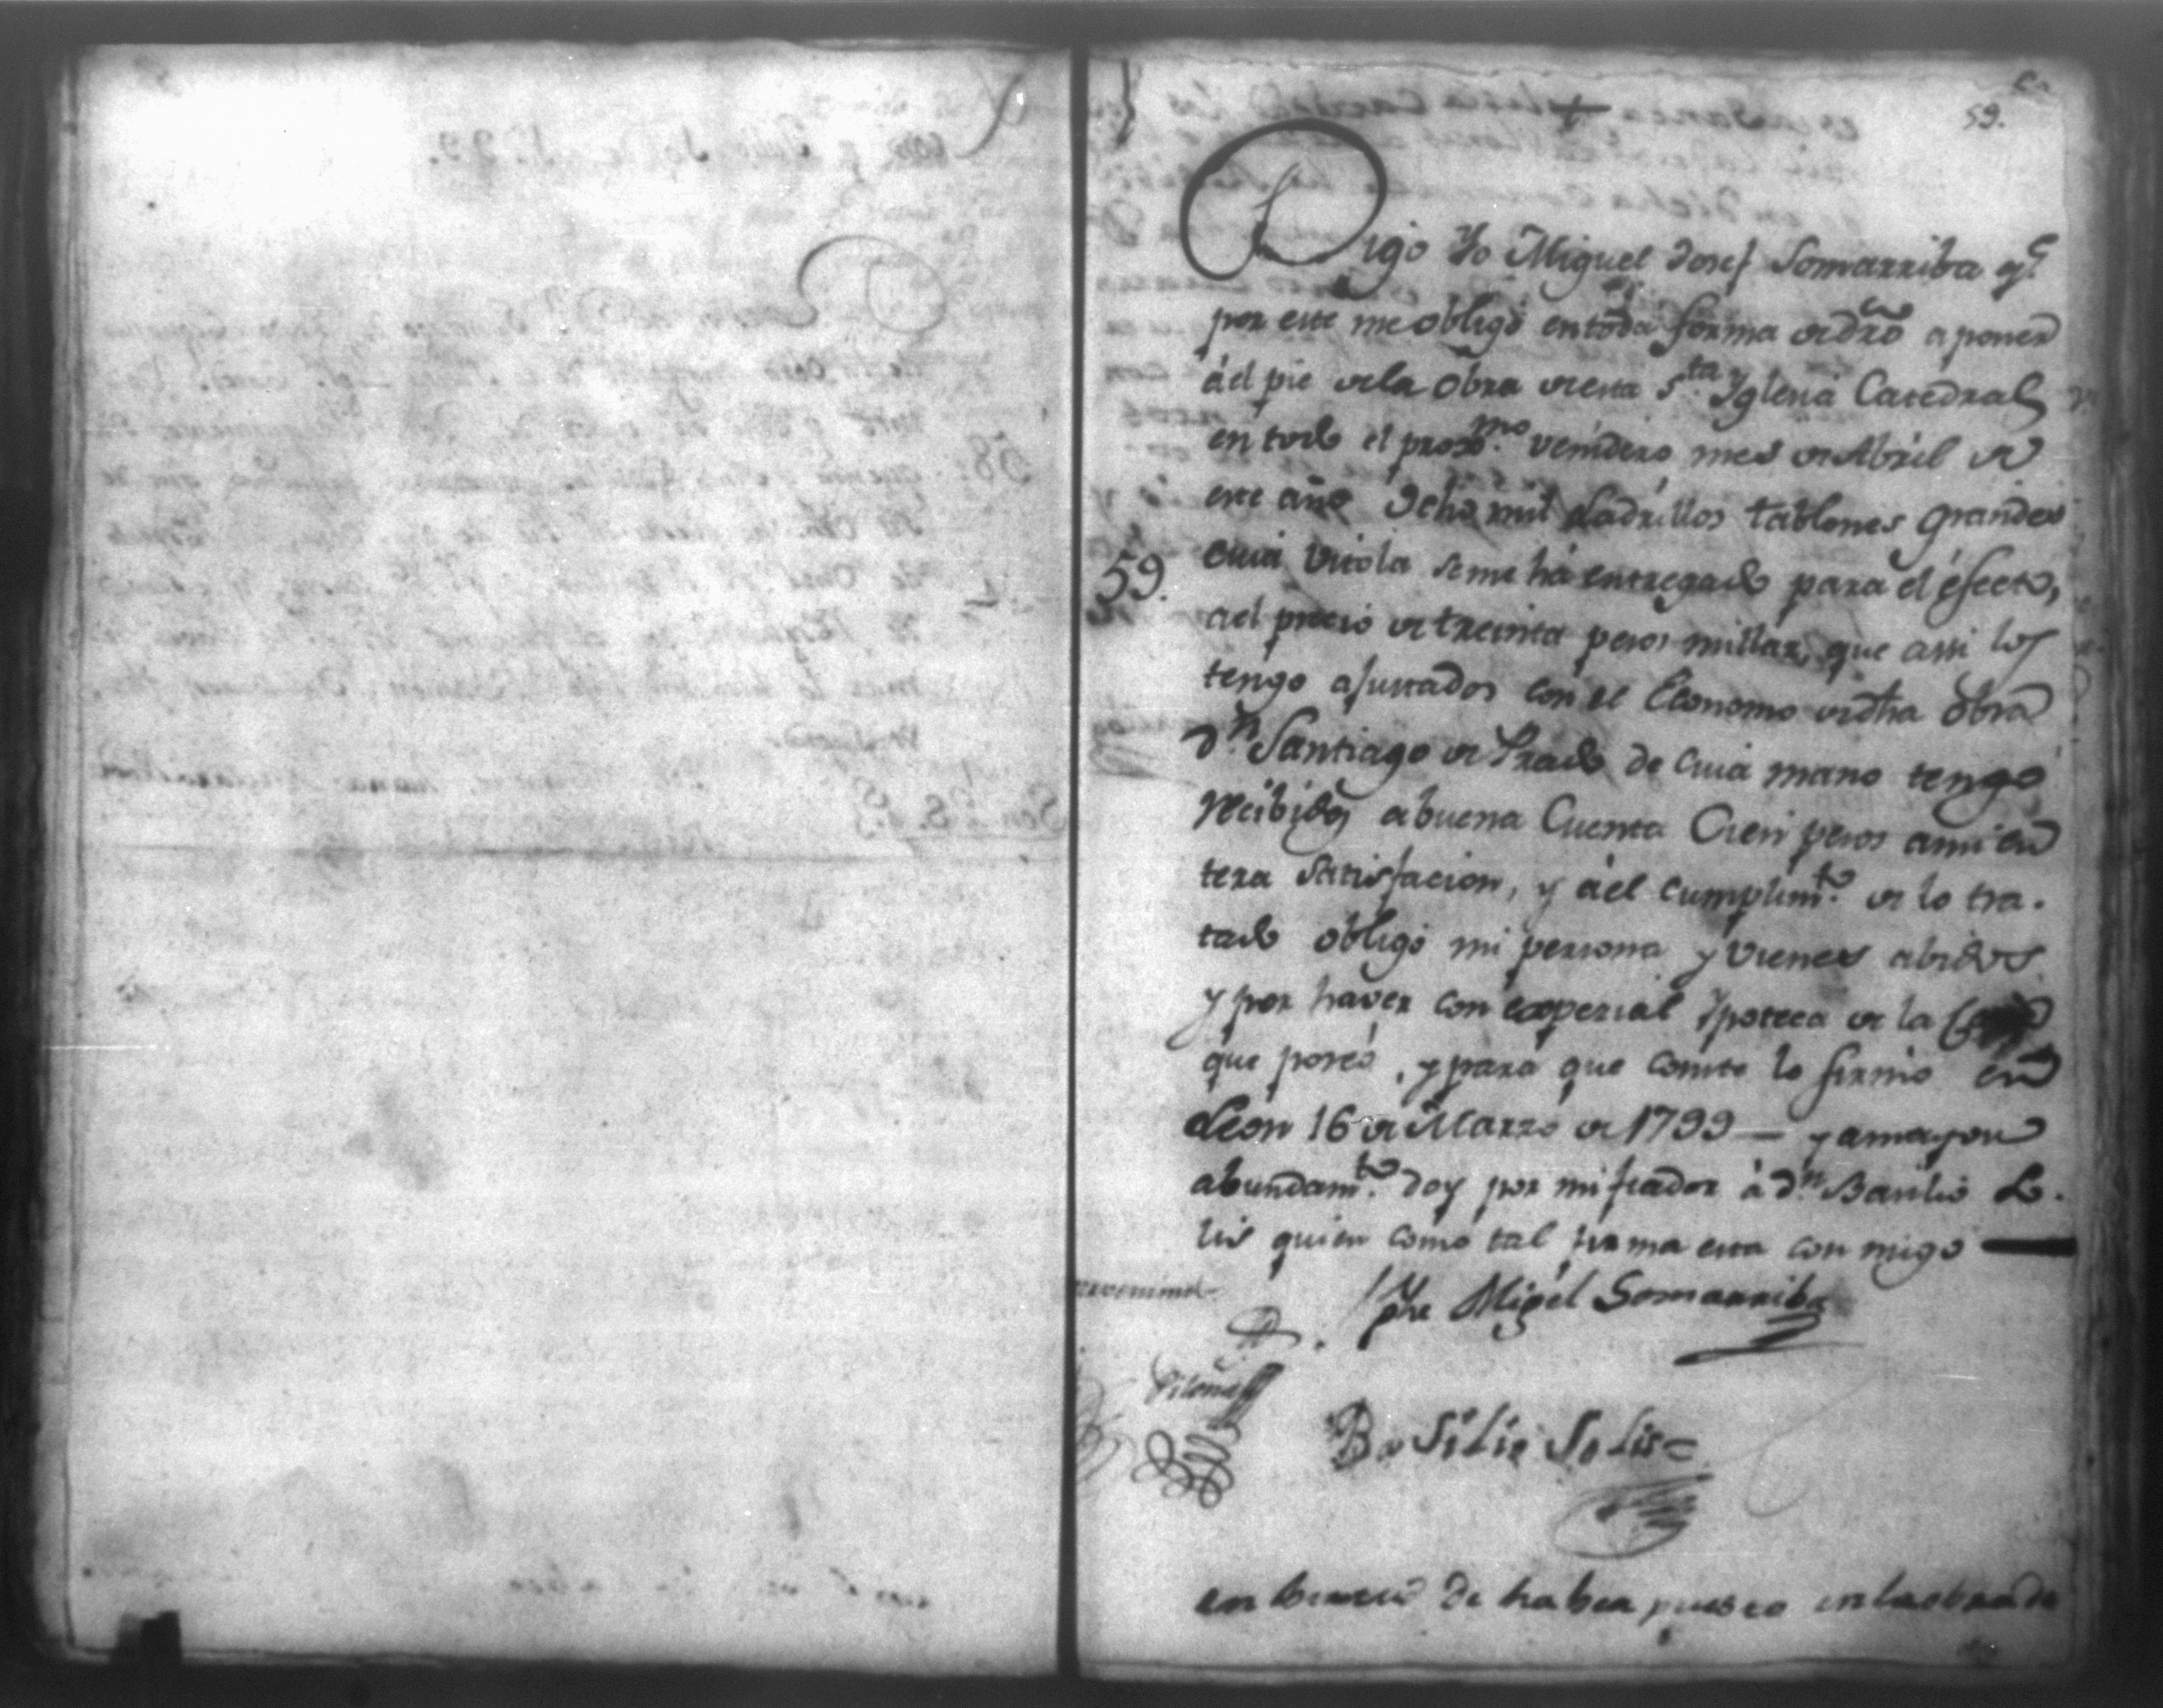 59.
Digo Yo Miguel Josef Somarriba q.e
por este me obligo en toda forma de dro a poner
áel pie de la obra de esta S.ta Yglesia Catedral
en todo el prox.mo venidero mes de Abril de
este año Ocho mil Ladrillos tablones grandes
cuia vitola se me há entregado para el éfecto,
59.
ael precio de treinta pesos millar, que assi los
tengo ajustados con el Economo de dha obra
D.n Santiago de Prado de cuia mano tengo
recibidos abuena Cuenta Cien pesos ami en
tera satisfacion, y áel cumplim.to de lo tra.
tado obligo mi persona y vienes abidos
y por haver con espesial Ypoteca de la
que poseo, y para que conste lo firmo en
Leon 16 de Marzo de 1799 — y a mayor
abundam.to doy por mi fiador á d.n Basilio So.
lis quien como tal firma esta con migo
Migel Somarriba
Pilona
Basilio Solis
de haber puesto en la obra de